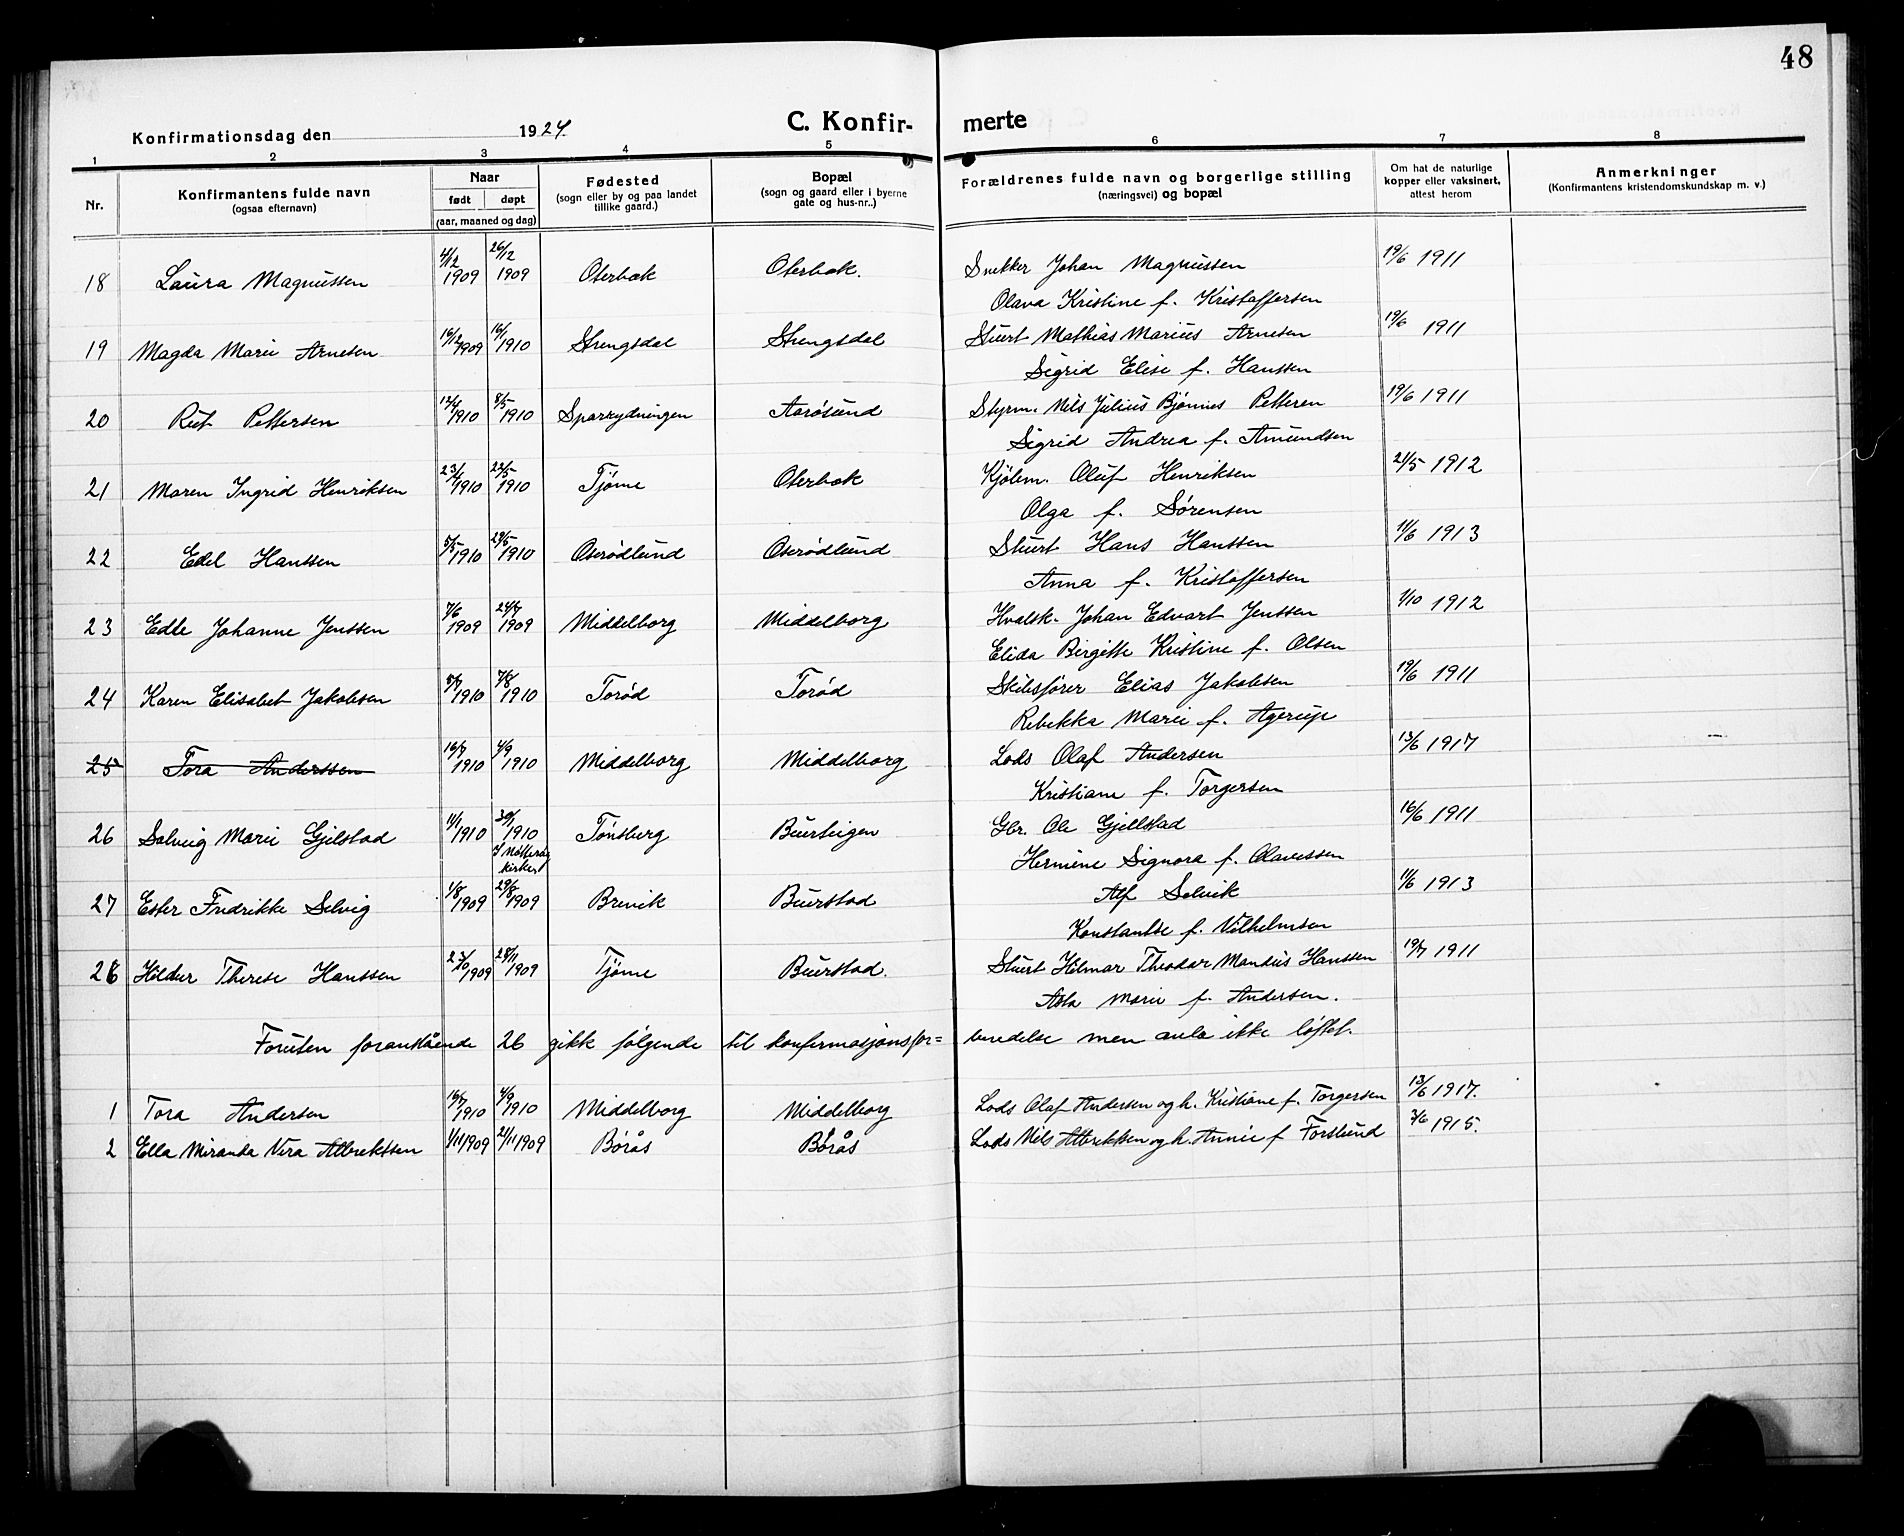 48
Konfirmationsdag den 1924. C. Konfir- merte
1 2 3 4 5 6 7 8
Nr. Konfirmantens fulde navn (ogsaa efternavn) Naar født døpt (aar, maaned og dag) Fødested (sogn eller by og paa landet tillike gaard.) Bopæl (sogn og gaard eller i byerne gate og hus-nr..) Forældrenes fulde navn og borgerlige stilling (næringsvei) og bopæl Om hat de naturlige kopper eller vaksinert, attest herom Anmerkninger (Konfirmantens kristendomskundskap m. v.)
18 Laura Magnussen 4/12 1909 26/12 1909 Oterbæk Oterbæk. Snekker Johan Magnussen 19/6 1911
Olava Kristine f. Kristoffersen
19 Magda Marie Arnesen 16/12 1909 16/1 1910 Strengsdal Strengsdal Stuert Mathias Marius Arnesen 19/6 1911
Sigrid Elise f. Hanssen
20 Rut Pettersen 12/4 1910 8/5 1910 Sparrydningen Aarøsund Styrm. Nils Julius Bjønnes Petteren 19/6 1911
Sigrid Andrea f. Amundsen
21 Maren Ingrid Henriksen 23/4 1910 22/5 1910 Tjøme Oterbæk Kjølem. Oluf Henriksen 21/5 1912
Olga f. Sørensen
22 Edel Hanssen 5/5 1910 29/5 1910 Oserødlund Oserødlund Stuert Hans Hanssen 11/6 1913
Anna f. Kristoffersen
23 Edle Johanne Jenssen 7/6 1909 24/7 1909 Middelborg Middelborg Hvalsk. Johan Edvart Jenssen 1/10 1912
Elida Birgitte Kristine f. Olsen
24 Karen Elisabet Jakobsen 5/7 1910 7/8 1910 Torød Torød Skibsfører Elias Jakobsen 19/6 1911
Rebekka Marie f. Agerup
25 Tora Anderssen 16/7 1910 4/9 1910 Middelborg Middelborg Lods Olaf Andersen 13/6 1917
Kristiane f. Torgersen
26 Solveig Marie Gjelstad 11/1 1910 30/1 1910 I Nøtterøy kirke Tønsberg Buerteigen Gbr. Ole Gjellstad 16/6 1911
Hermine Signora f. Olavessen
27 Ester Fredrikke Selvig 1/8 1909 29/8 1909 Brevik Buerstad Alf Selvik 11/6 1913
Konstantse f. Vilhelmsen
28 Hildur Therese Hanssen 23/10 1909 28/11 1909 Tjøme Buerstad. Stuert Hilmar Theodor Mandius Hanssen 19/7 1911
Asta Marie f. Andersen.
Foruten foranstående 26 gikk følgende til konfirmasjonsfor= beredelse men avla ikke løftet.
1 Tora Andersen 16/7 1910 4/9 1910 Middelborg Middelborg Lods Olaf Andersen og h. Kristiane f. Torgersen 13/6 1917.
2 Ella Miranda Vera Albrektsen 1/11 1909 21/11 1909 Børås Børås Lods Nils Albrektsen og h. Annie f Forslund 3/6 1915.